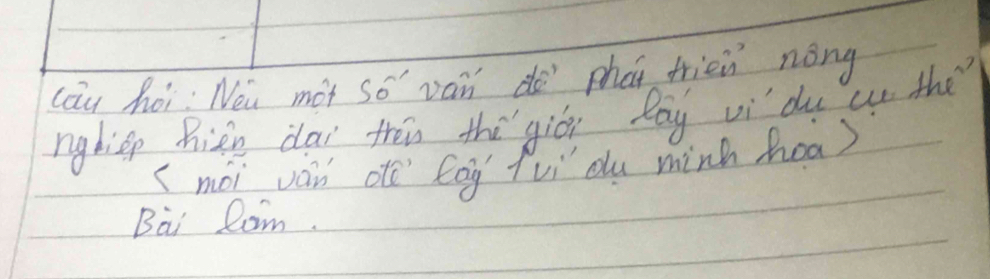 Câu hỏi: Nêu một số vấn đề phát triển nông
nghiệp hiện đại trên thế giới lấy ví dụ cụ thể
< mỗi vấn đề lấy 1 ví dụ minh họa >
Bài làm.